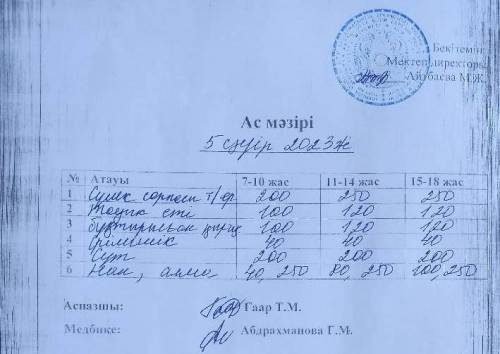 Бекітемін
Мектеп директоры
Айтбаева М.Ж.
Ас мәзірі
5 сәуір 2023ж
№ Атауы 7-10 жас 11-14 жас 15-18 жас
1 Сүйек сорпасы т/ер 200 250 250
2 Тауық еті 100 120 120
3 бұқтырылған 100 120 120
4 Ірімшік 40 40 40
5 Сүт 200 200 200
6 Нан, алма 40, 250 80, 250 100, 250
Аспазшы: Гаар Т.М.
Медбике: Абдрахманова Г.М.